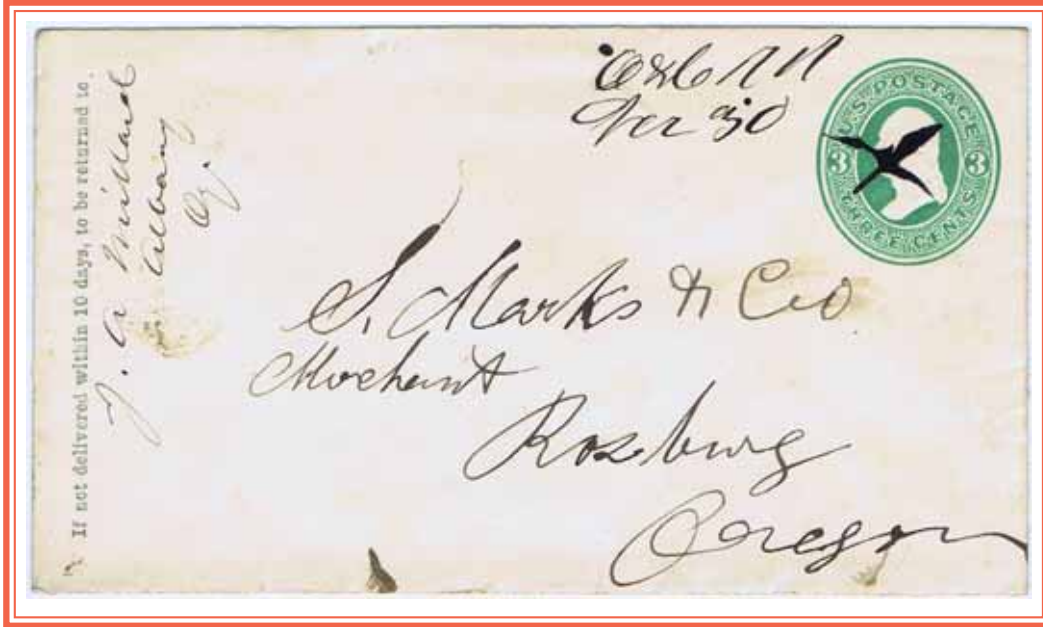 If not delivered within 10 days, to be returned to
J. A Millard
Albany
Og.
O&C R R
30
U.S. POSTAGE
3 3
THREE CENTS
S. Marks & Co
Mochant
Rozburg
Oregon